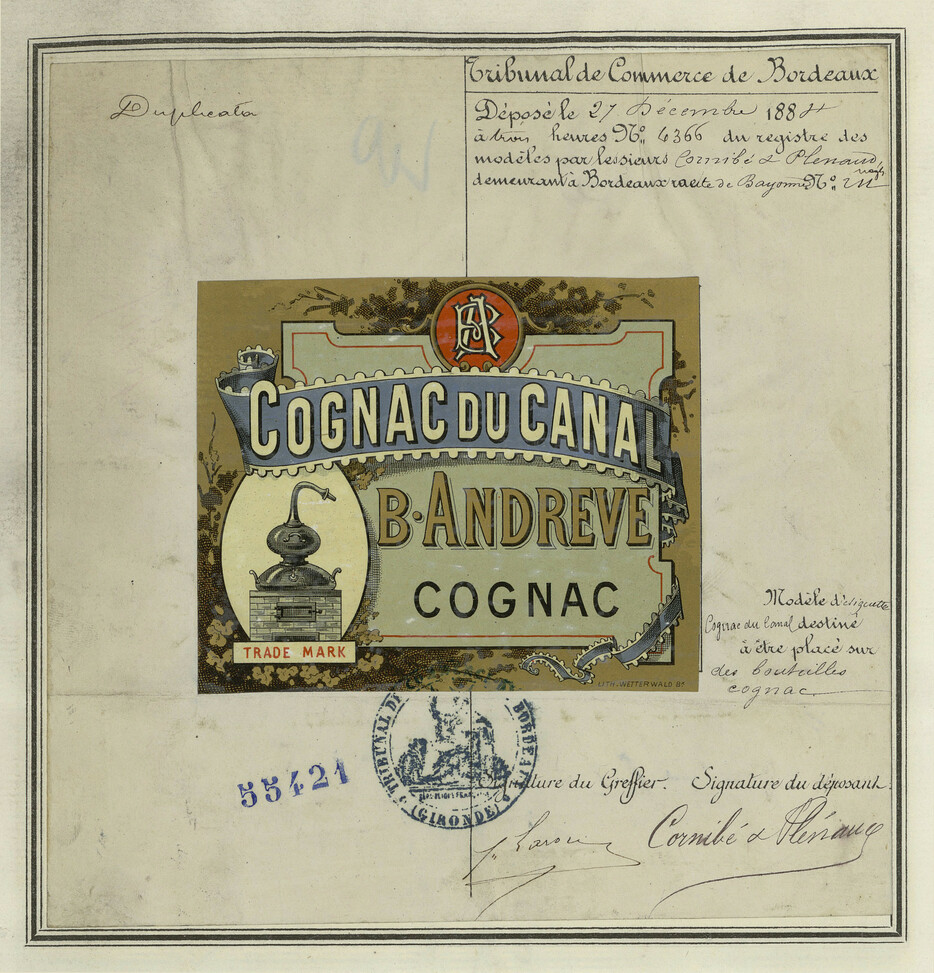 Duplicata
Tribunal de Commerce de Bordeaux
Déposé le 27 Décembre 1884
à trois heures N° 4366 du registre des
modèles par les sieurs Cornibé & Plénaud,
demeurant à Bordeaux de Bayonne N°
COGNAC DU CANAL
B. ANDREVE
COGNAC
TRADE MARK
LITH. WETTERWALD BX
Modèle d'étiquette
Cognac du Canal destiné
à être placé sur
des bouteilles
cognac
TRIBUNAL DE BORDEAUX
(GIRONDE)
55421
Signature du Greffier. Signature du déposant.
Cornibé & Plénaud